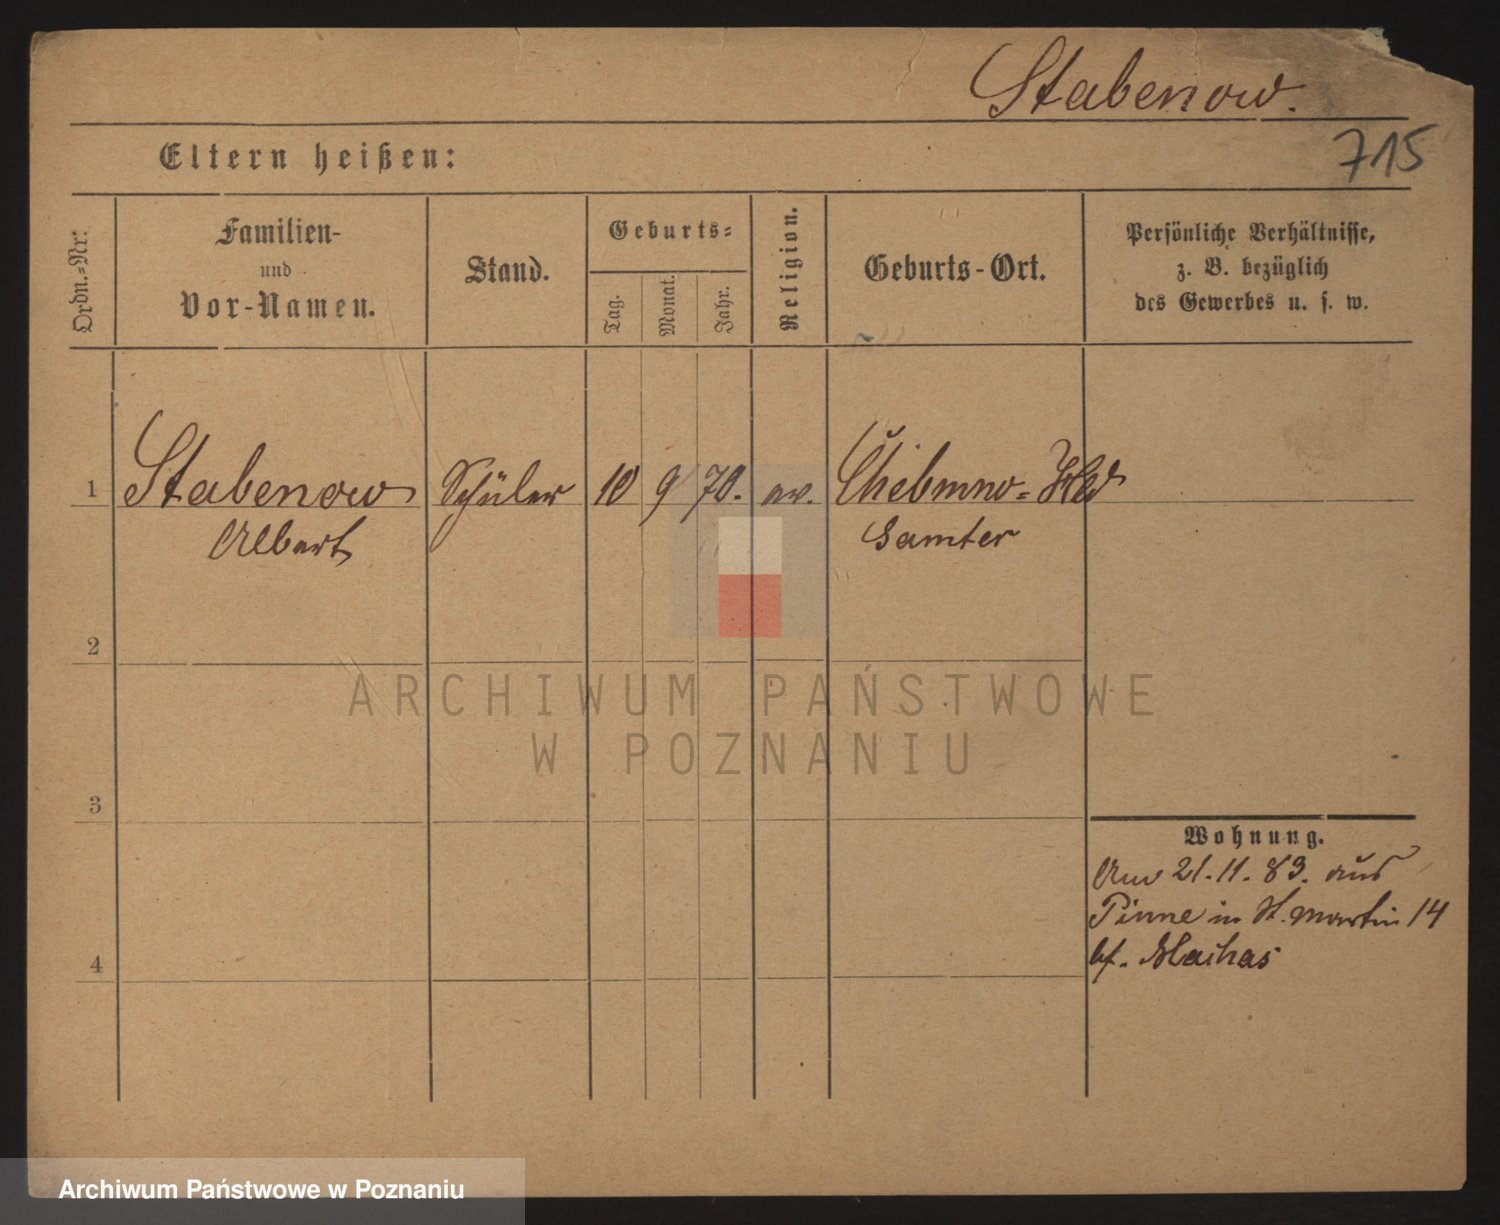 Stabenow.
715
Eltern heißen:
Ordn.-Nr:
Familien-
und
Vor-Namen.
Stand.
Geburts-
Tag.
Monat.
Jahr.
Religion.
Geburts-Ort.
Persönliche Verhältnisse,
z. B. bezüglich
des Gewerbes u. s. w.
1 Stabenow Schüler 10 9 70. ev.
Albert Samter
2
ARCHIWUM PAŃSTWOWE
W POZNANIU
3
Wohnung.
Am 21.11.83. aus
Pinne in St. Martin 14
4
Archiwum Państwowe w Poznaniu